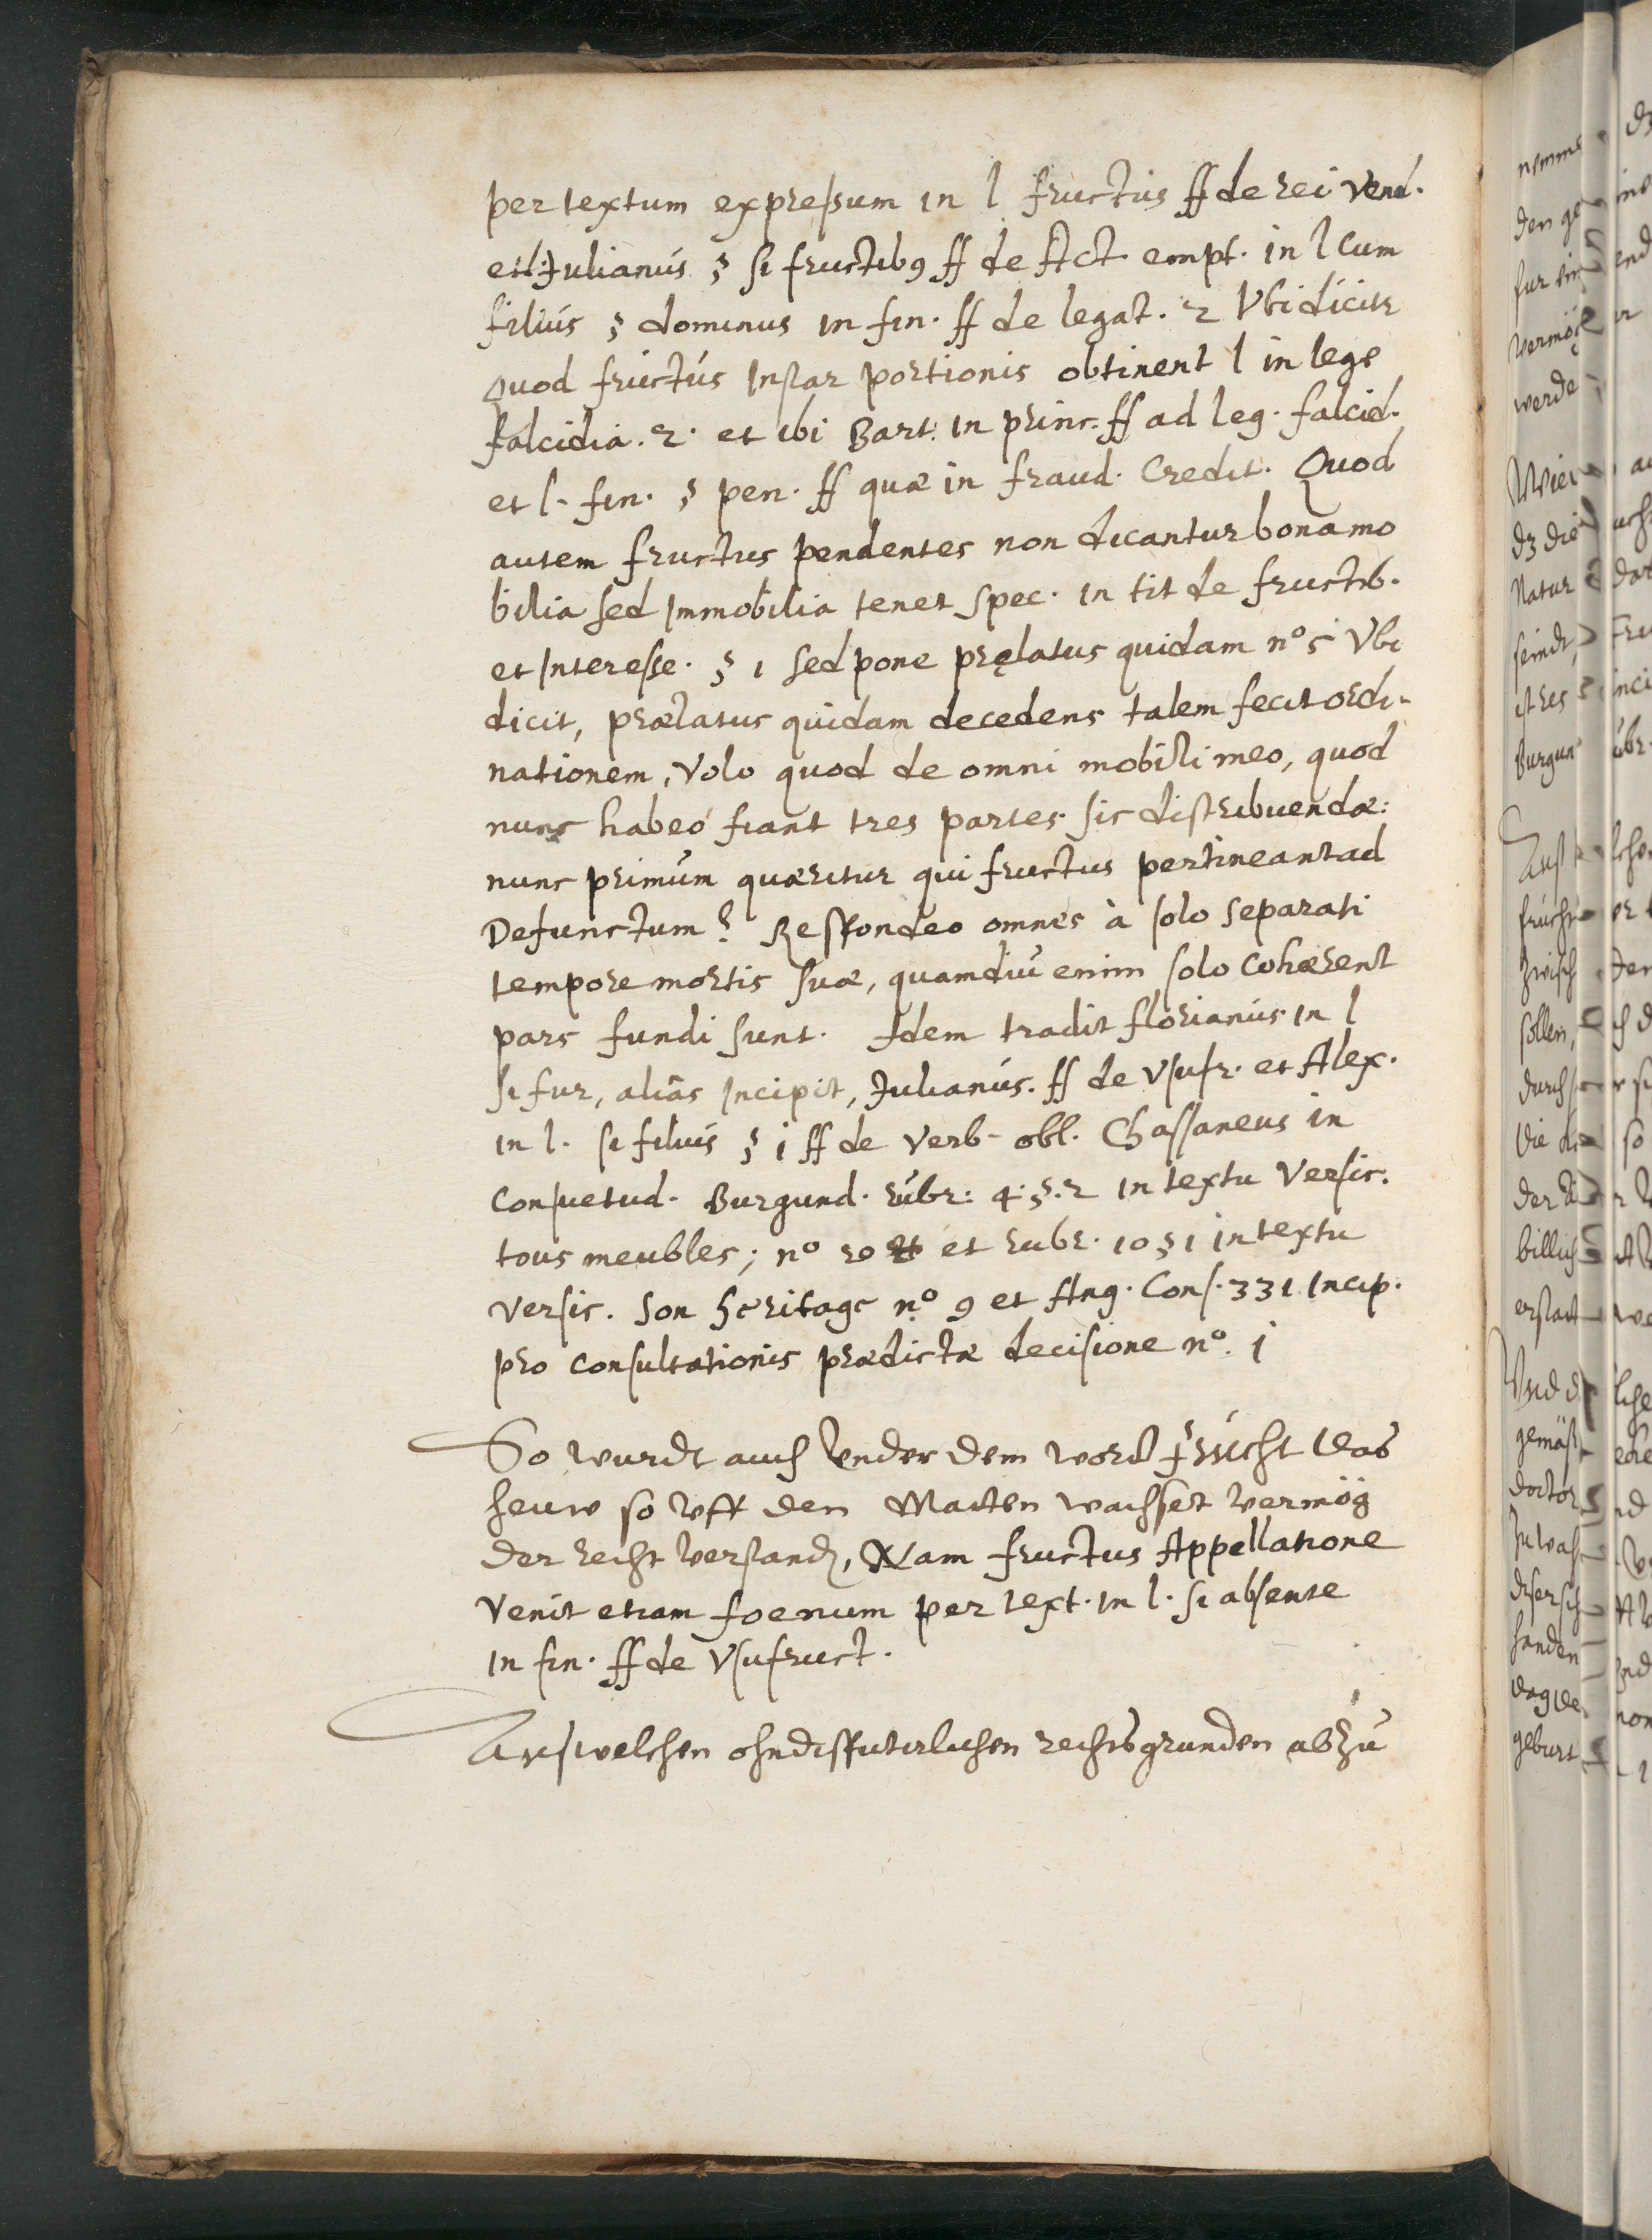 per textum expreßum in l fructus ff de rei vend.
et l: Julianus § si fructib9 ff de Act. empt. in l Cum
filius § dominus in fin. ff de legat. 2 Vbi dicitr
quod fructus Instar portionis obtinent l in lege
falcidia. 2. et ibi Bart. in princ. ff ad leg. falcid.
et l. fin. § pen. ff quæ in fraud. Credit. Quod
autem fructus pendentes non dicantur bona mo
bilia sed Immobilia tenet spec. in tit de fructib.
et Interesse. § 1 sed pone pręlatus quidam no 5 Vbi
dicit, prælatus quidam decedens talem fecit ordi-
nationem, Volo quod de omni mobili meo, quod
nunc habeo fiant tres partes sic distribuendæ:
nunc primum quæritur qui fructus pertineant ad
Defunctum? Respondeo omnes à solo separati
tempore mortis suæ, quamdiu enim solo cohærent
pars fundi sunt. Idem tradit florianus in l
si fur, aliâs Incipit, Julianus. ff de Vsufr. et Alex.
in l. si filius § i ff de Verb. obl. Chassaneus in
Consuetud. Burgund. rubr: 4. §. 2 in textu Versic.
tous meubles; no 20 et rubr. 10 § 1 in textu
versic. Son heritage no 9 et Ang. Cons. 331 Incip.
pro Consultationis prædictæ decisione no. i
So wurdt auch Vnder dem wort frücht das
heuw so vff den Matten wachset vermög
der recht verstandn, Nam fructus Appellatione
Venit etiam foenum per text. in l. si absente
in fin. ff de Vsufruct.
Auß welchen ohndisputirlichen rechtsgrunden abzu